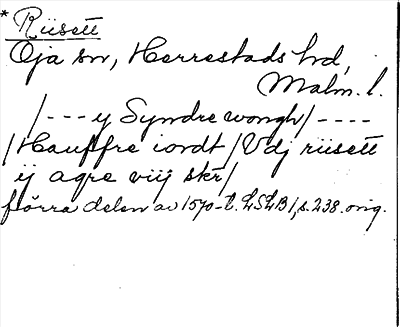 * Riisett
Öja sn, Herrestads hd,
Malm. l.
/--- y Syndre wongh/----
/Hauffre iordt/Vdj riisett
ij agre viij skr/
förra delen av 1570-t. LSLB 1, s. 238. orig.